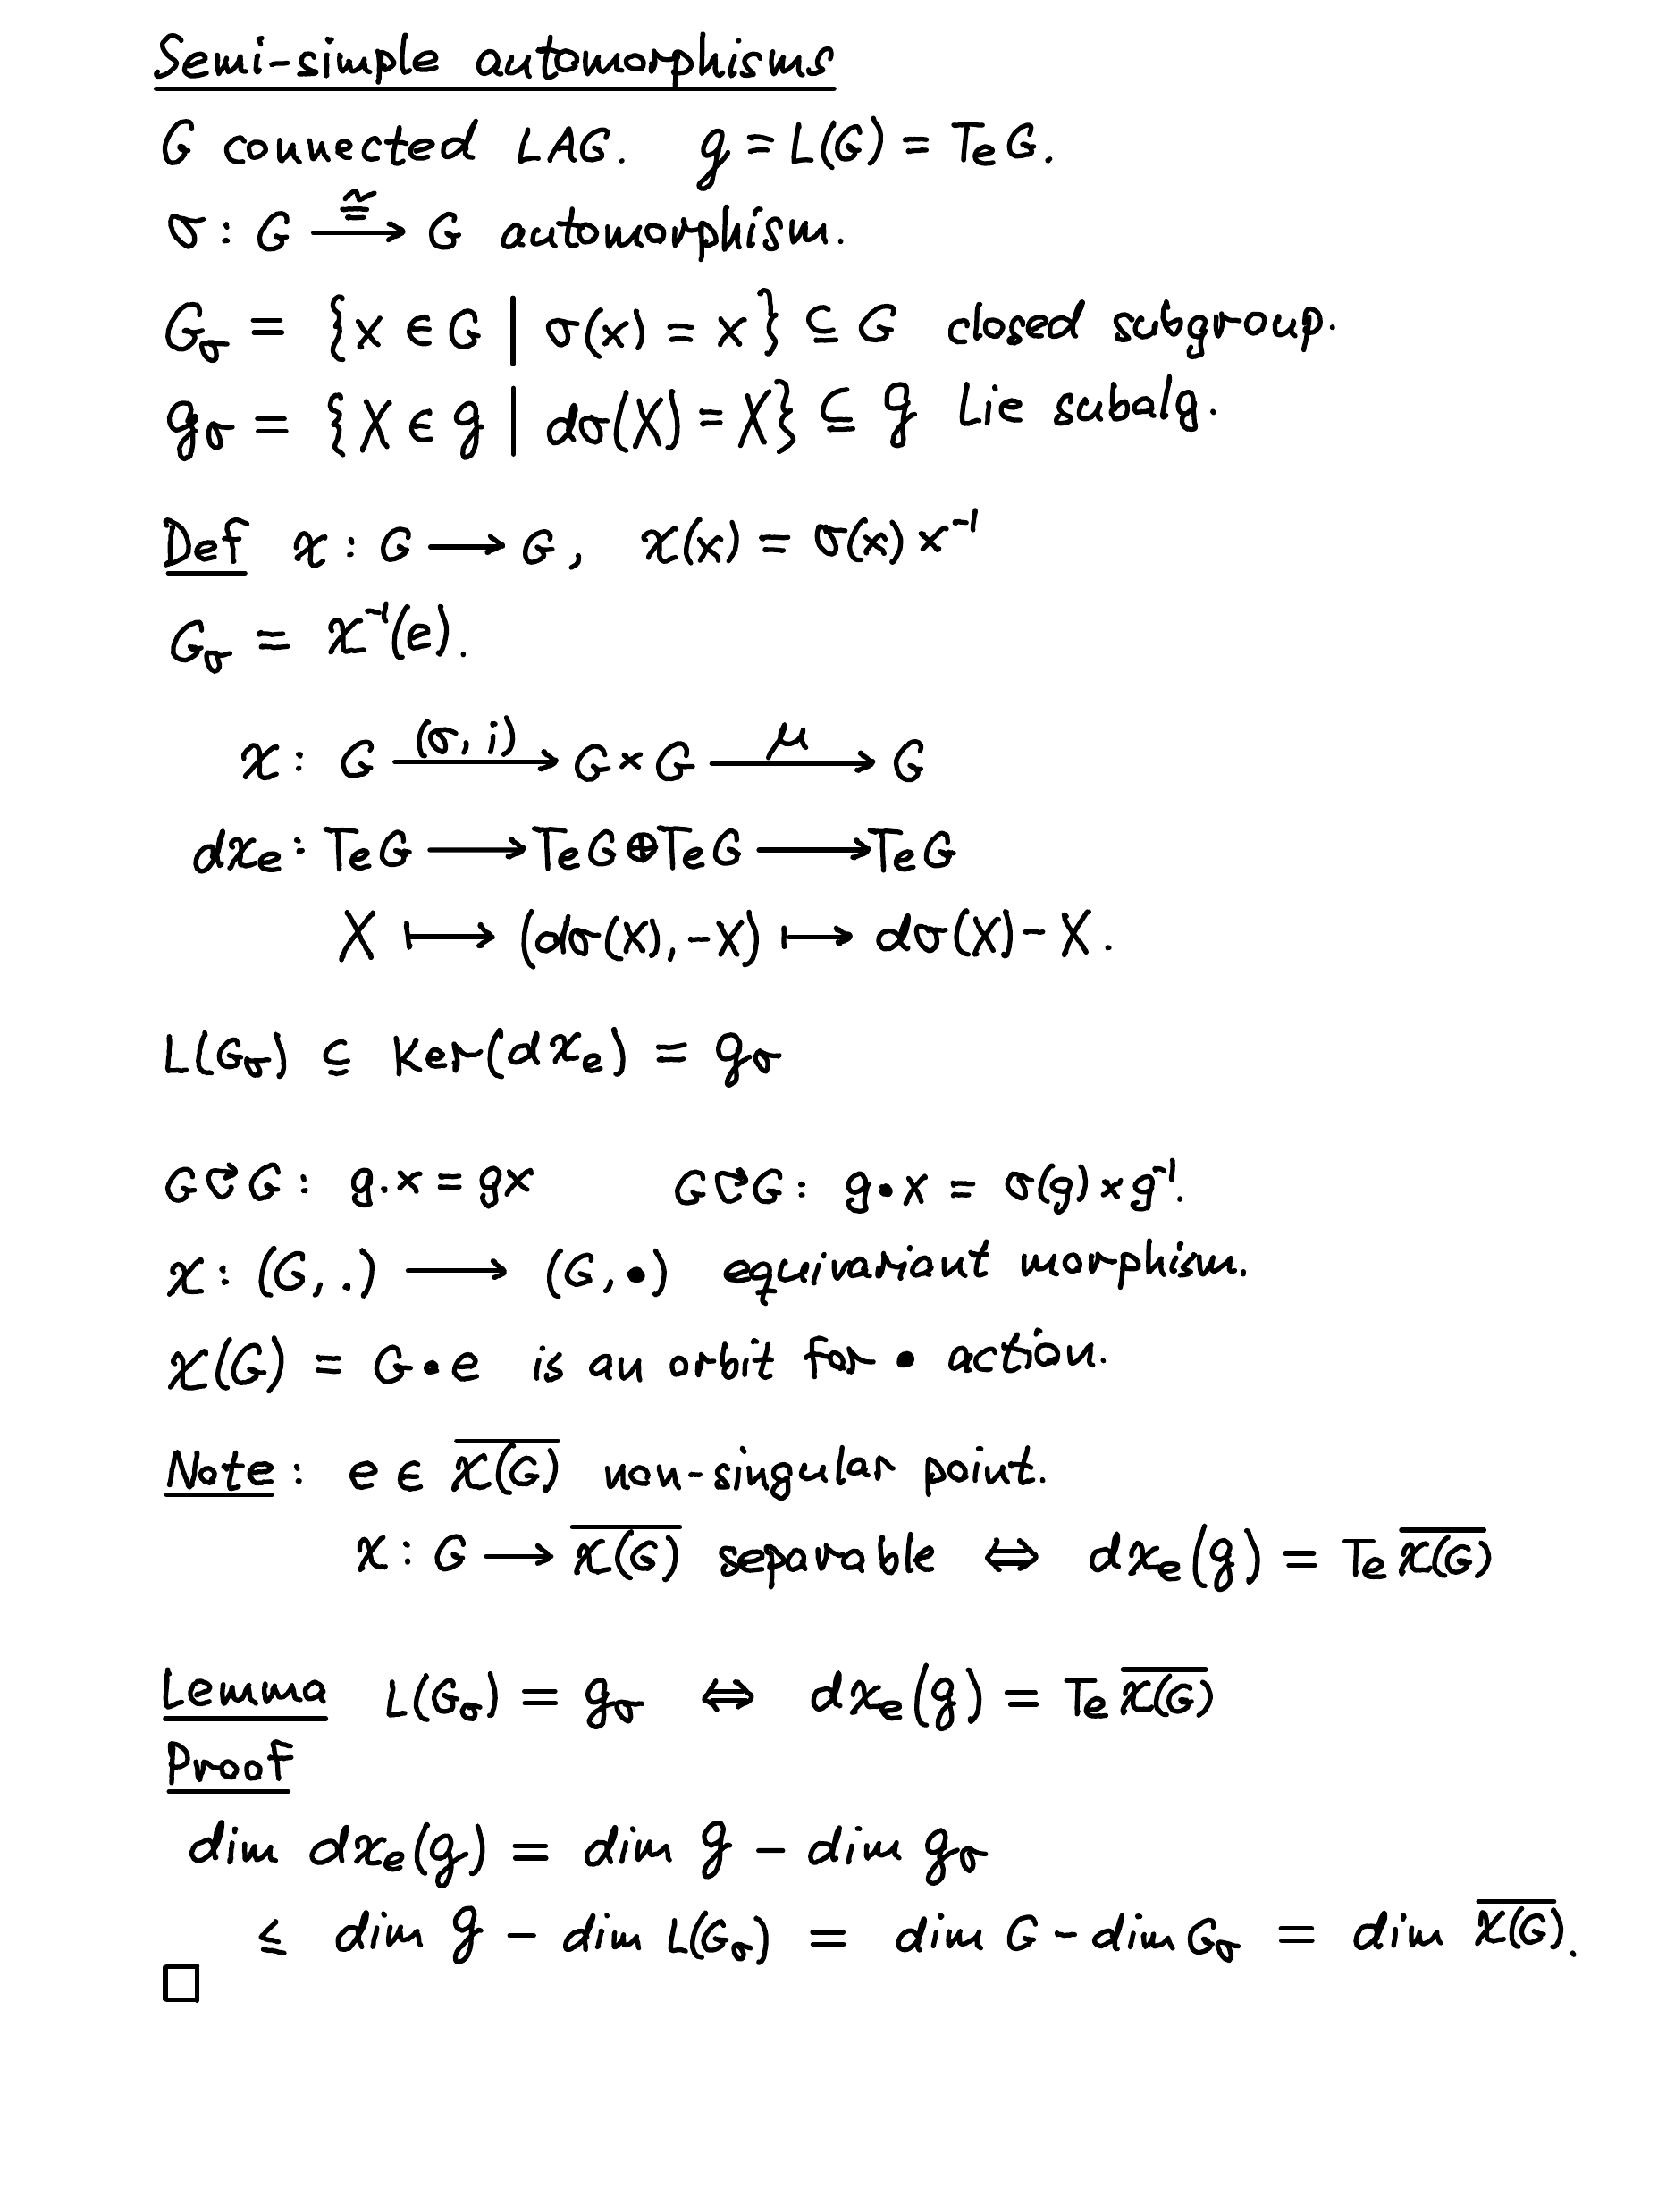 Semi-simple automorphisms
G connected LAG. g = L(G) = TeG.
σ : G ≅⟶ G automorphism.
Gσ = {x ∈ G | σ(x) = x} ⊆ G closed subgroup.
gσ = {X ∈ g | dσ(X) = X} ⊆ g Lie subalg.
Def χ : G ⟶ G, χ(x) = σ(x) x⁻¹
Gσ = χ⁻¹(e).
χ : G (σ, i)⟶ G × G μ⟶ G
dχe : TeG ⟶ TeG ⊕ TeG ⟶ TeG
X ⟼ (dσ(X), -X) ⟼ dσ(X) - X.
L(Gσ) ⊆ Ker(dχe) = gσ
G ↻ G : g . x = gx G ↻ G : g • x = σ(g) x g⁻¹.
χ : (G, .) ⟶ (G, •) equivariant morphism.
χ(G) = G • e is an orbit for • action.
Note : e ∈ \overline{χ(G)} non-singular point.
χ : G ⟶ \overline{χ(G)} separable ⇔ dχe(g) = Te \overline{χ(G)}
Lemma L(Gσ) = gσ ⇔ dχe(g) = Te \overline{χ(G)}
Proof
dim dχe(g) = dim g - dim gσ
≤ dim g - dim L(Gσ) = dim G - dim Gσ = dim \overline{χ(G)}.
□